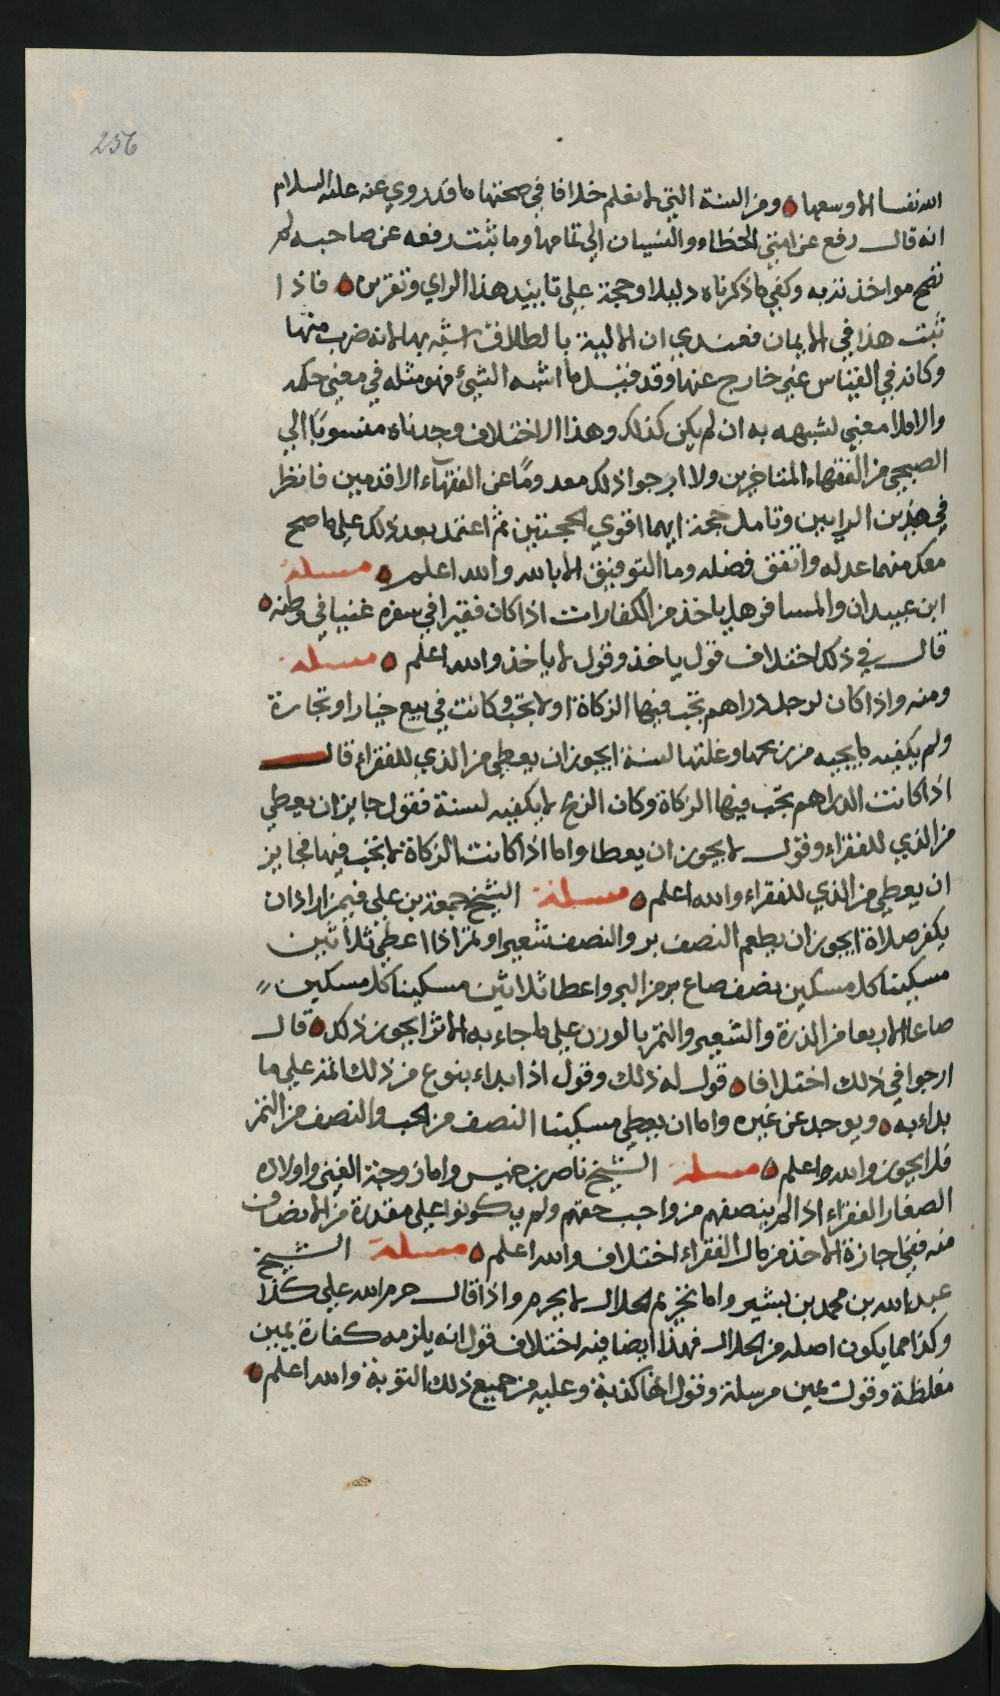 256
الله نفسا الا وسعها ه ومن السنة التي لا نعلم خلافا في صحتها ما قد روي عنه عليه السلام
انه قال رفع عن امتي الخطاء والنسيان الي تمامها وما ثبت رفعه عن صاحبه لم
تصح مواخذته به وكفي ما ذكرناه دليلا وحجة علي تاييد هذا الراي وتقريره ه فاذا
ثبت هذا في الايمان فعندي ان الالية بالطلاق اشبه بها لانه ضرب منها
وكانه في القياس غير خارج عنها وقد قيل ما اشبه الشيئ فهو مثله في معني حكمه
والا فلا معني لشبهه به ان لم يكن كذلك وهذا الاختلاف وجدناه منسوبا الي
الصبحي من الفقهاء المتاخرين ولا ارجوا ذلك معدوما عن الفقهاء الاقدمين فانظر
في هذين الرايين وتامل حجة ايهما اقوي الحجتين ثم اعتمد بعد ذلك علي ما صح
معك منهما عدله واتفق فضله وما التوفيق الا بالله والله اعلم ه مسئلة
ابن عبيدان والمسافر هل ياخذ من الكفارات اذا كان فقيرا في سفره غنيا في وطنه ه
قال في ذلك اختلاف قول ياخذ وقول لا ياخذ والله اعلم ه مسئلة
ومنه واذا كان لرجل دراهم تجب فيها الزكاة او لا تجب وكانت في بيع خيار او تجارة
ولم يكفيه ما يجيه من ربحها وغلتها لسنة ايجوز ان يعطي من الذي للفقراء قال
اذا كانت الدراهم تجب فيها الزكاة وكان الربح لا يكفيه لسنة فقول جايز ان يعطي
من الذي للفقراء وقول لا يجوز ان يعطا واما اذا كانت الزكاة لا تجب فيها فجايز
ان يعطي من الذي للفقراء والله اعلم ه مسئلة الشيخ جمعة بن علي فيمن اراد ان
يكفر صلاة ايجوز ان يطعم النصف بر والنصف شعير او تمر اذا اعطي ثلاثين
مسكينا كل مسكين نصف صاع بر من البر واعطا ثلاثين مسكينا كل مسكين
صاعا الا ربعا من الذرة والشعير والتمر بالوزن علي ما جاء به الاثر ايجوز ذلك ه قال
ارجوا في ذلك اختلافا ه قول له ذلك وقول اذا بداء بنوع من ذلك اتمه علي ما
بداء به ه ويوجد عن غيره واما ان يعطي مسكينا النصف من الحب والنصف من التمر
فلا يجوز والله اعلم ه مسئلة الشيخ ناصر بن خميس واما زوجة الغني واولاده
الصغار الفقراء اذا لم ينصفهم من واجب حقهم ولم يكونوا علي مقدرة من الانصاف
منه ففي اجازة الاخذ من مال الفقراء اختلاف والله اعلم ه مسئلة الشيخ
عبد الله بن محمد بن بشير واما تحريم الحلال لا يحرم واذا قال حرم الله علي كذا
وكذا مما يكون اصله من الحلال فهذا ايضا فيه اختلاف قول انه يلزمه كفارة يمين
مغلظة وقول يمين مرسلة وقول انها كذبة وعليه من جميع ذلك التوبة والله اعلم ه